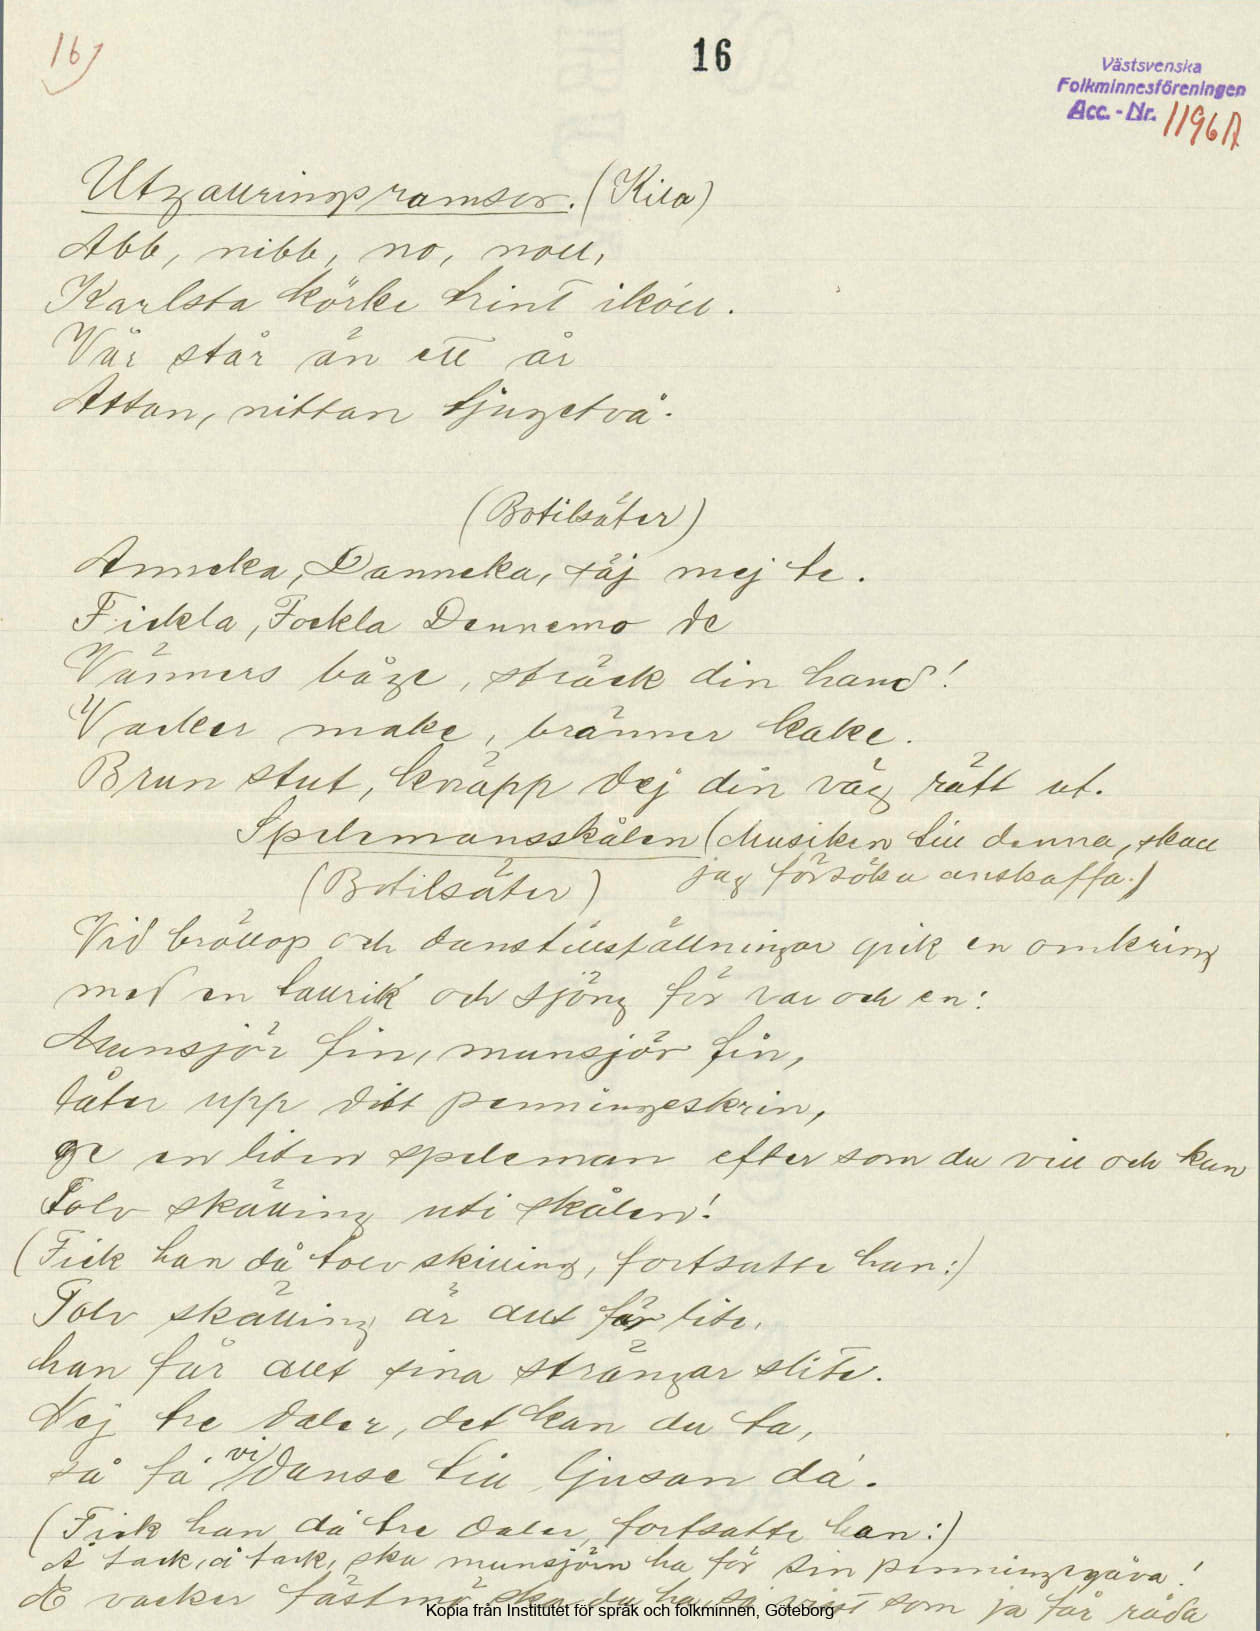 16)
16
Västsvenska
Folkminnesföreningen
Acc. - Nr. 1196A
Utgallringsramsor. (Kila)
Abb, nibb, no, noll,
Karlsta körke trint ikóll.
Vår står än ett år
Attan, nittan tjugetvå.
(Botilsäter)
Anneka, Danneka, säj mej te.
Fickla, Fockla Dennemo de
Vänners båge, sträck din hand!
Vacker make, bränner kake.
Brun stut, knäpp dej din väg rätt ut.
Spelemansskålen (Musiken till denna, skall
jag försöka anskaffa.)
(Botilsäter)
Vid bröllop och danstillställningar gick en omkring
med en tallrik och sjöng för var och en:
Munsjör fin, munsjör fin,
låter upp ditt penningeskrin,
ge en liten speleman efter som du vill och kan
Tolv skälling uti skålen!
(Fick han då tolv skilling, fortsatte han:)
Tolv skälling är allt för lite,
han får allt sina strängar slite.
Nej tre daler, det kan du ta,
så få vi danse till ljusan da.
(Fick han då tre daler, fortsatte han:)
Å tack, å tack, ska munsjörn ha för sin penningegåva!
E vacker fästmö ska du ha, så visst som ja får råda
Kopia från Institutet för språk och folkminnen, Göteborg